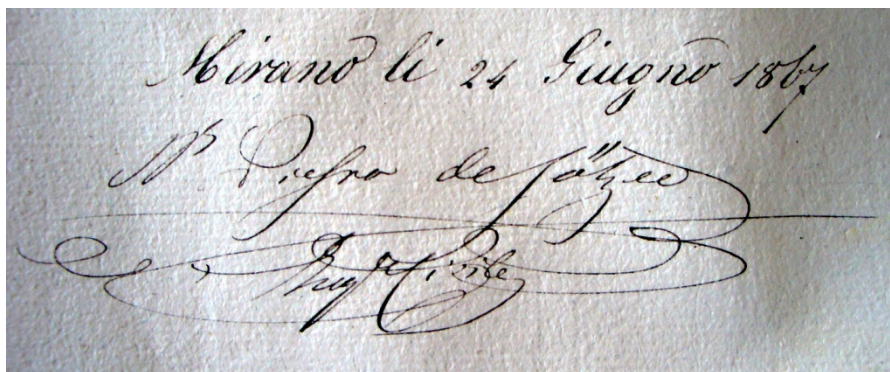 Mirano li 24 Giugno 1867
Pietro de
Ing.re Civile